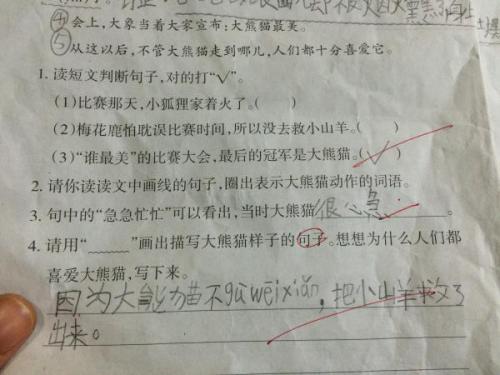 ④会上,大象当着大家宣布:大熊猫最美。
⑤从这以后,不管大熊猫走到哪儿,人们都十分喜爱它。
1. 读短文判断句子,对的打“√”。
(1)比赛那天,小狐狸家着火了。( )
(2)梅花鹿怕耽误比赛时间,所以没去救小山羊。( )
(3)“谁最美”的比赛大会,最后的冠军是大熊猫。(√)
2. 请你读读文中画线的句子,圈出表示大熊猫动作的词语。
3. 句中的“急急忙忙”可以看出,当时大熊猫很心急。
4. 请用“﹏﹏”画出描写大熊猫样子的句子。想想为什么人们都
喜爱大熊猫,写下来。
因为大能猫不gù wēixiǎn,把小山羊救了
出来。